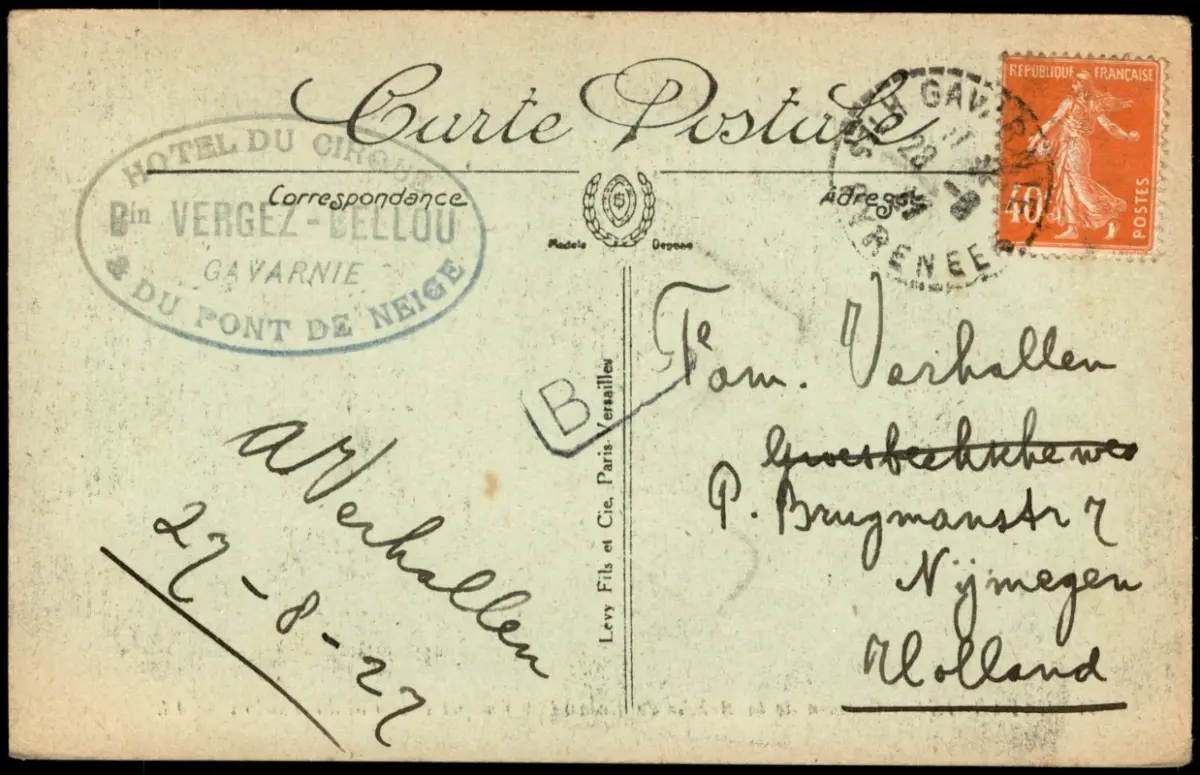 Carte Postale
Correspondance
Adresse
Modèle Déposé
HOTEL DU CIRQUE
Bin VERGEZ-BELLOU
GAVARNIE
& DU PONT DE NEIGE
GAVARNIE
28
PYRENEES
REPUBLIQUE FRANÇAISE
40
POSTES
B
Levy Fils et Cie, Paris-Versailles
A Verhallen
27-8-27
Fam. Verhallen
Groesbeekscheweg
P. Brugmanstr 7
Nijmegen
Holland